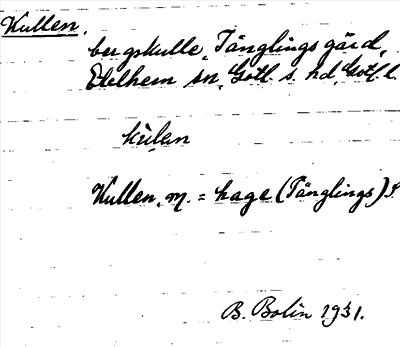 Kullen.
bergskulle, Tänglings gård,
Etelhem sn, Gotl. s. hd, Gotl. l.
kùlan
Kullen, m. = hage (Tänglings)
B. Bolin 1931.